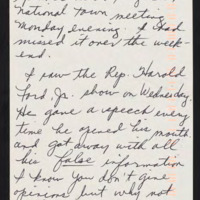 national town meeting
Monday evening. I had
missed it over the week-
end.
I saw the Rep. Harold
Ford, Jr. show on Wednesday.
He gave a speech every
time he opened his mouth
and got away with all
his false information
I know you don't give
opinions but why not